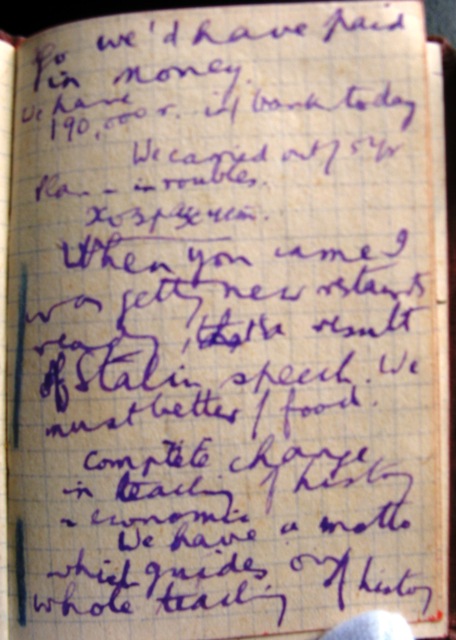 So we'd have paid
in money.
We have
190,000 r. in bank today
We carried out 5 yr
Plan - in roubles.
When you came I
was getting new
ready, that's a result
of Stalin speech. We
must better / food.
complete change
in teaching of history
economic
We have a motto
which guides our
whole teaching of history